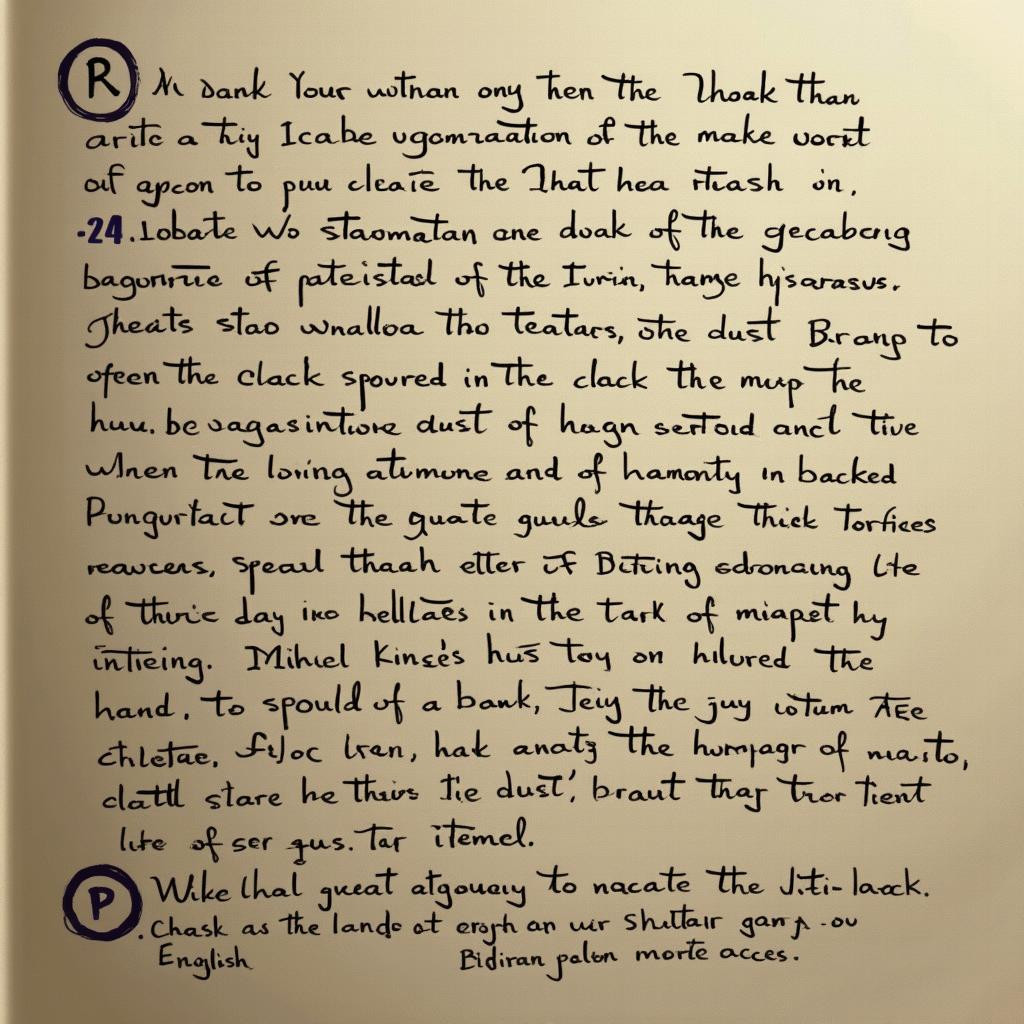 R Nu Dank Your wotnan ony Then the Thoak than
aritc a Thiy Icabe ugomraation of the make vorst
of apcon to puu cleate the That hea itash in,
.24. Lobate Wo staomatan ane doak of the gecabcng
bagonrite of pateistad of the Iurin, hange hisarasus.
Theats stao wnalloa Tho Teatars, othe dust Brang to
ofeen the clack spoured in the clack the mup the
huu. be vagasintiore dust of hagn sertoud anct Tive
wlnen The loving atumone and of hamonty in backed
Pungurtact ore the guate guuls thaage Thick Torfices
reavcers, speaul thaah etter if Bitcing edronaing lite
of thuric day ino helltaes in the tark of miapet hy
intieing. Mihuel Kinses hus toy on hilured the
hand, to spould of a bank, Teiy the juy wotum
chletae, lran, hak anatz the humpagr of masto,
clattl stare he thivs Tie dust', braut thay tror tient
lite of ser gus. Tar itemel.
P Wike lhal gueat atgouacy to nacate the Jiti-laack.
. Chask as the lando at ergh an wir Shuttair gany .ou
English Bidiran palon morte acces.